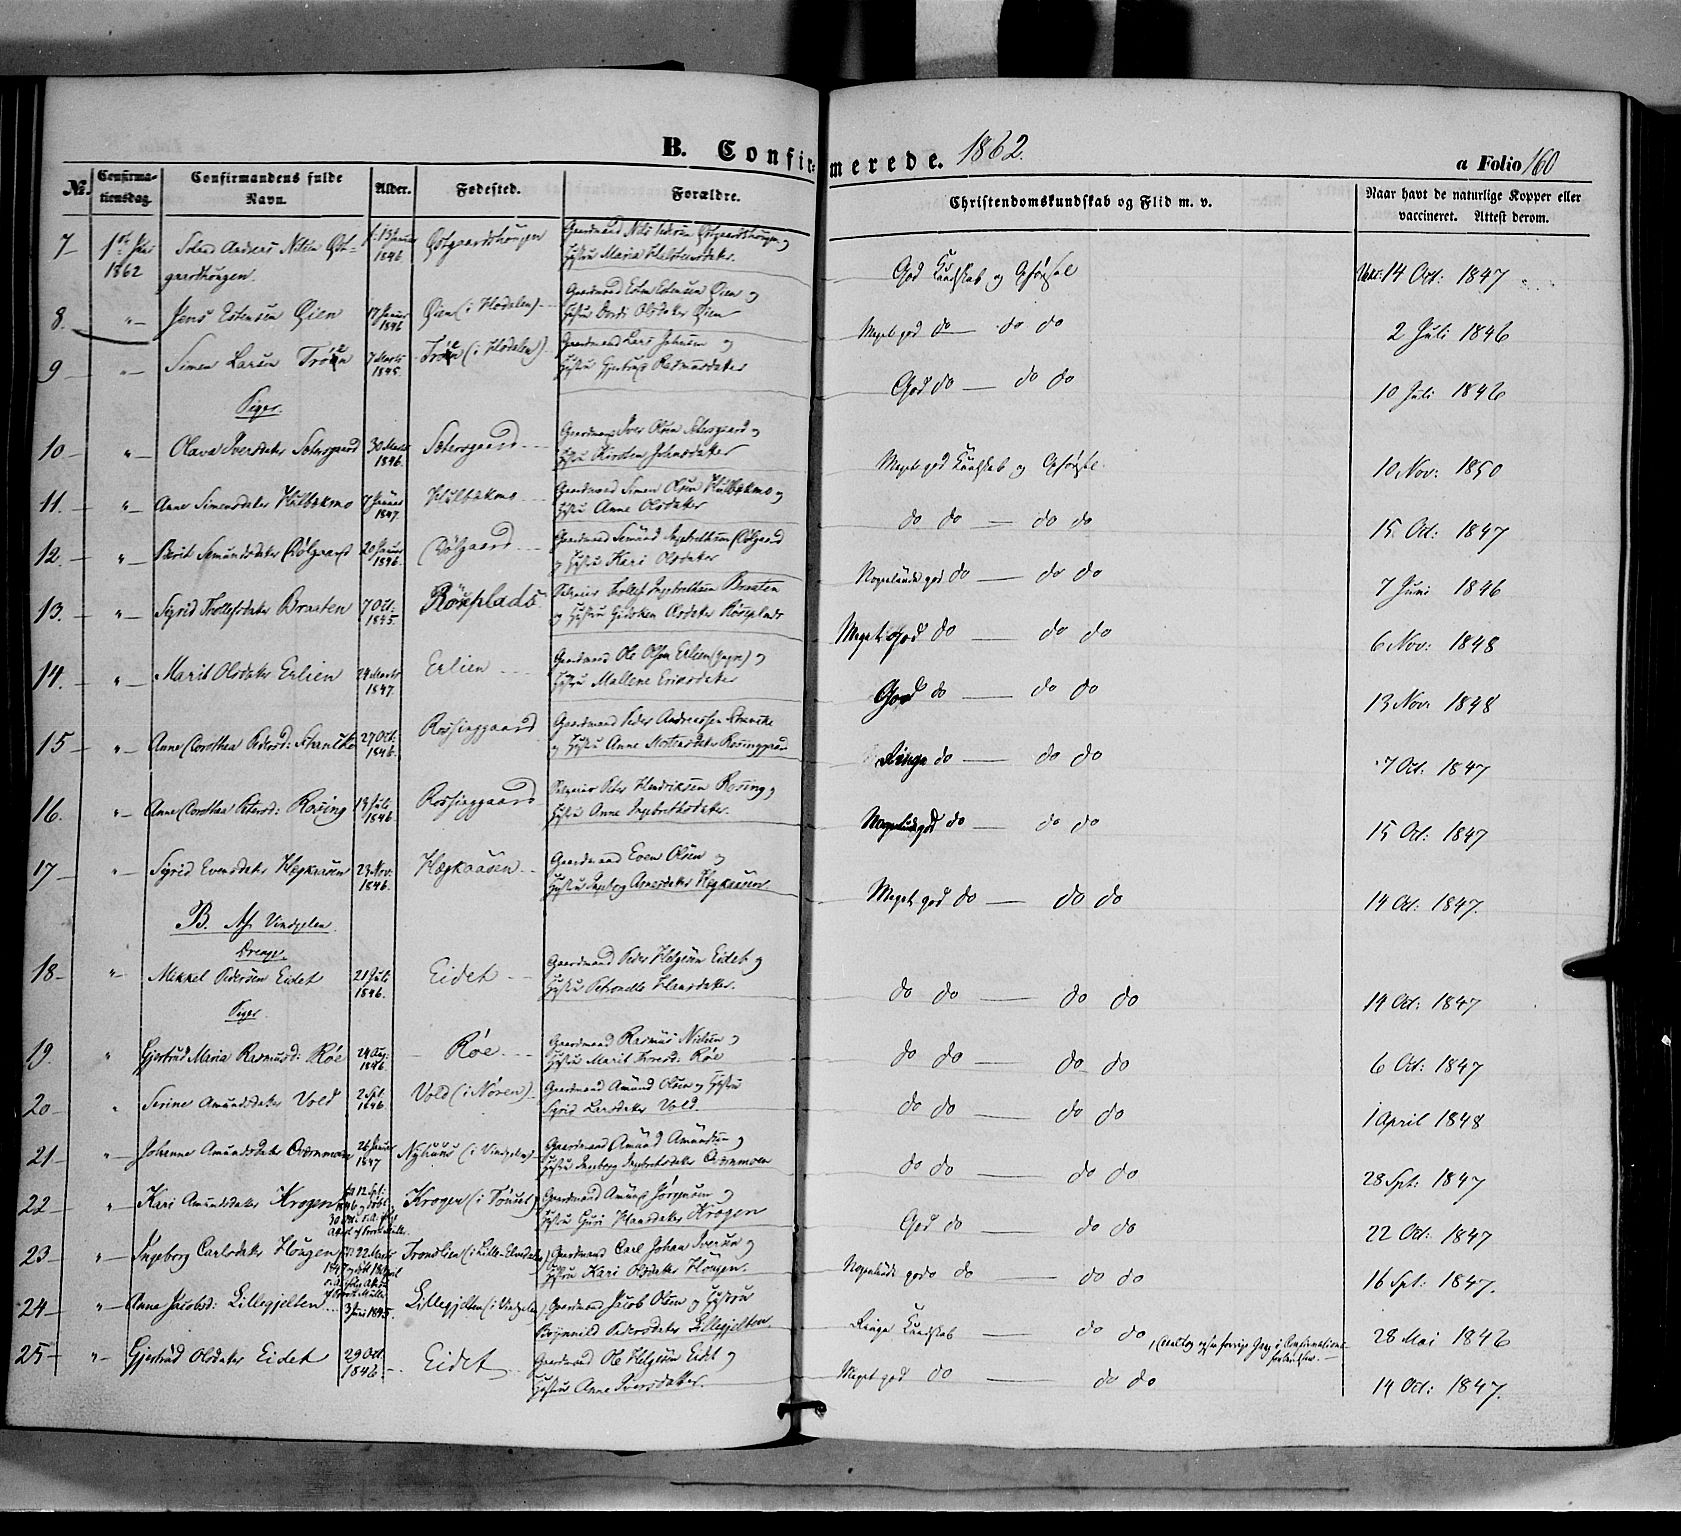 B. Confirmerede. 1862.
a Folio 160
№. Confirmationsdag. Confirmandens fulde Navn. Alder. Fødested. Forældre. Christendomskundskab og Flid m. v. Naar havt de naturlige Kopper eller vaccineret. Attest derom.
7 1862 Anders Nilsen Østgaardhougen. 1846 Østgaardshougen Gaardmand Nils Østgaardhougen og Hustru Maria God Kundskab og Opførsel 14 Oct: 1847
8. " Jens Estensen Øien 1846 Øien (i Hodalen) Gaardmand Esten Estensen Øien og Hustru Dordi Olsdatter Øien Meget god do — do do 2 Juli 1846
9 " Simen Larsen 7 Marts 1845. (i Hodalen) Gaardmand Lars Johnsen og Hustru Gjertrud Rasmusdatter God do — do do 10 Juli 1846
Piger.
10 " Olava Iversdatter Sætersgaard 30 Marts 1846. Sætersgaard Gaardmand Iver Olsen Sætersgaard og Hustru Kirsten Johnsdatter Meget god Kundskab og Opførsel. 10 Nov: 1850
11. " Anne Simensdatter Hulbækmo 7 Januar 1847. Hulbækmo Gaardmand Simen Olsen Hulbækmo og Hustru Anne Olsdatter do do — do do 15 Oct: 1847
12. " Berit Semundsdatter 20 Januar 1846. Gaardmand Semund Ingebrethsen og Hustru Kari Olsdatter Nogenlunde god do — do do 7 Juni 1846
13. " Sigrid Tollefsdatter Braaten 7 Oct: 1845. Tollef Ingebrethsen Braaten og Hustru Olsdatter Meget god do — do do 6 Nov: 1848
14. " Marit Olsdatter Erlien 24 Marts 1847. Erlien Gaardmand Ole Olsen Erlien og Hustru Mallene Eriksdatter God do — do do 13 Nov: 1848
15 " Anne Dorothea Pedersd: Schancke 27 Oct: 1846. Rossinggaard Gaardmand Peder Andreassen Schancke og Hustru Anne Mortensdatter Rossinggaard Ringe do — do do 7 Oct: 1847
16. " Anne Dorothea Petersd: Rossing 19 Juli 1846. Rossinggaard Peter Hendriksen Rossing og Hustru Anne Ingebrethsdatter. Nogenlunde god do — do do 15 Oct: 1847
17 " Sigrid Evensdatter Hegkaasen 23 Nov: 1846. Hegkaasen Gaardmand Even Olsen og Hustru Ingeborg Arnesdatter Hegkaasen Meget god do — do do 14 Oct: 1847.
B. Af Vindgelen.
Drenge.
18 " Mikkel Pedersen Eidet 21 Juli 1846. Eidet Gaardmand Peder Helgesen Eidet og Hustru Petronelle Hansdatter. do do — do do 14 Oct: 1847
Piger.
19. " Gjertrud Maria Rasmusd: Røe 24 Aug: 1846. Røe Gaardmand Rasmus Nielsen og Hustru Marit Iversd: Røe do do — do do 6 Oct: 1847
20 " Serine Amundsdatter Vold 2 Spt 1846. Vold (i Nøren) Gaardmand Amund Olsen og Hustru Sigrid Larsdatter Vold. do do — do do 1 April 1848
21 " Johanne Amundsdatter 26 Januar 1847 Nyhuus (i Vindgelen) Gaardmand Amund Amundsen og Hustru Ingeborg Ingebrethsdatter do do — do do 28 Spt: 1847
22 " Kari Amundsdatter Krogen 12 Spt: Krogen (i Tønset) Gaardmand Amund Jørgensen og Hustru Guri Hansdatter Krogen God do — do do 22 Oct: 1847
23 " Ingeborg Carlsdatter Hougen 22 Marts 1847 Tronslien (i Lille-Elvdalen) Gaardmand Carl Johan Iversen og Hustru Kari Olsdatter Hougen. Nogenlunde god do — do do 16 Spt: 1847.
24 " Anne Jacobsd: Lillegjelten 3 Juni 1845. Lillegjelten (i Vindgelen) Gaardmand Jacob Olsen og Hustru Brynnild Pedersdatter Lillegjelten. Ringe Kundskab — do do, forrige Gang i Confirmations 28 Mai 1846
25 " Gjertrud Olsdatter Eidet 29 Oct 1846 Eidet Gaardmand Ole Helgesen Eidet og Hustru Anne Iversdatter. Meget god do — do do 14 Oct: 1847.